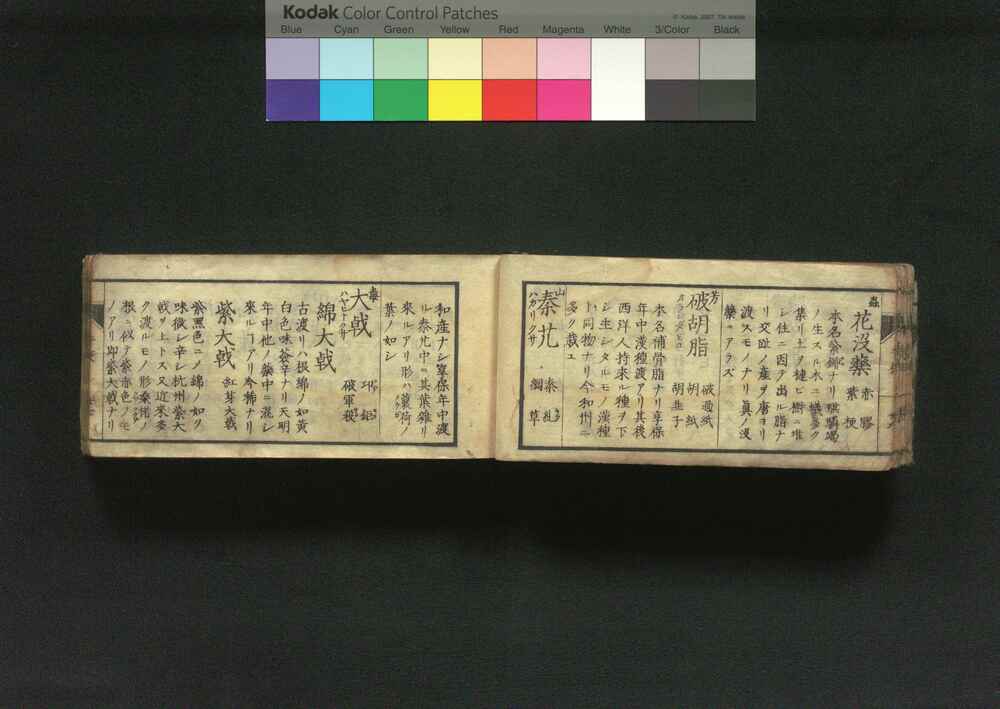 Kodak Color Control Patches
Blue Cyan Green Yellow Red Magenta White 3/Color Black
蟲
花没藥 赤膠 紫梗
本名紫鉚ナリ騏驎竭
ノ生スル木ニ蟻多ク
集リ土ヲ樋ヒ樹ニ
シ住ニ因ヲ出ル脂ナ
リ交趾ノ産ヲ唐ヨリ
渡スモノナリ真ノ没
藥ニアラズ
芳
破胡脂 破過紙 胡紙 胡韭子
本名補骨脂ナリ享保
年中漢種渡アリ其後
西洋人持来ル種ヲ下
シ生シタルモノ漢種
ト同物ナリ今和州ニ
多ク栽ユ
山
秦艽 秦 綱草
ハカリクサ
和産ナシ享保年中渡
ル秦艽中ニ其葉雑リ
來ルアリ形ハ蘘荷ノ
葉ノ如シ
毒
大戟 破軍殺
ハヤヒトクサ
綿大戟
古渡リハ根綿ノ如黄
白色味苦辛ナリ天明
年中他ノ藥中ニ混シ
來ルコアリ今稀ナリ
紫大戟 紅芽大戟
紫黑色ニノ綿ノ如ク
味微シ辛シ杭州紫大
戟ヲ上トス又近来多
ク渡ルモノ形柴胡ノ
根ニ似テ紫赤色ノモ
ノアリ即紫大戟ナリ